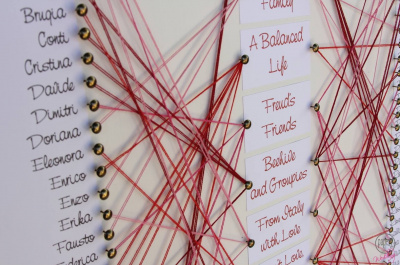 Brugia
Conti
Cristina
Davide
Dimitri
Doriana
Eleonora
Enrico
Enzo
Erika
Fausto
Federica
Family
A Balanced
Life
Freud's
Friends
Beehive
and Groupies
From Italy
with Love